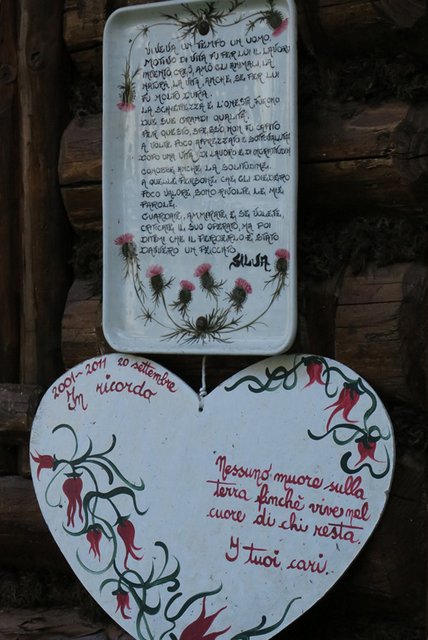 VIVEVA UN TEMPO UN UOMO.
MOTIVO DI VITA FU PER LUI IL LAVORO
INTENTO CREÒ, AMÒ GLI ANIMALI, LA
NATURA, LA VITA, ANCHE, SE, PER LUI
FU MOLTO DURA.
LA SCHIETTEZZA E L'ONESTÀ, FURONO
DUE SUE GRANDI QUALITÀ.
PER QUESTO, SPESSO NON FU CAPITO
A VOLTE POCO APPREZZATO E SOTTOVALUTATO
DOPO UNA VITA, DI LAVORO E DI INGRATITUDINI
CONOBBE ANCHE LA SOLITUDINE.
A QUELLE PERSONE, CHE GLI DIEDERO
POCO VALORE, SONO RIVOLTE LE MIE
PAROLE.
GUARDATE, AMMIRATE, E, SE, VOLETE,
CRITICATE IL SUO OPERATO, MA POI
DITEMI CHE IL PERDERLO È STATO
DAVVERO UN PECCATO.
SILVIA
2001-2011 20 settembre
In ricordo
Nessuno muore sulla
terra finchè vive nel
cuore di chi resta.
I tuoi cari.